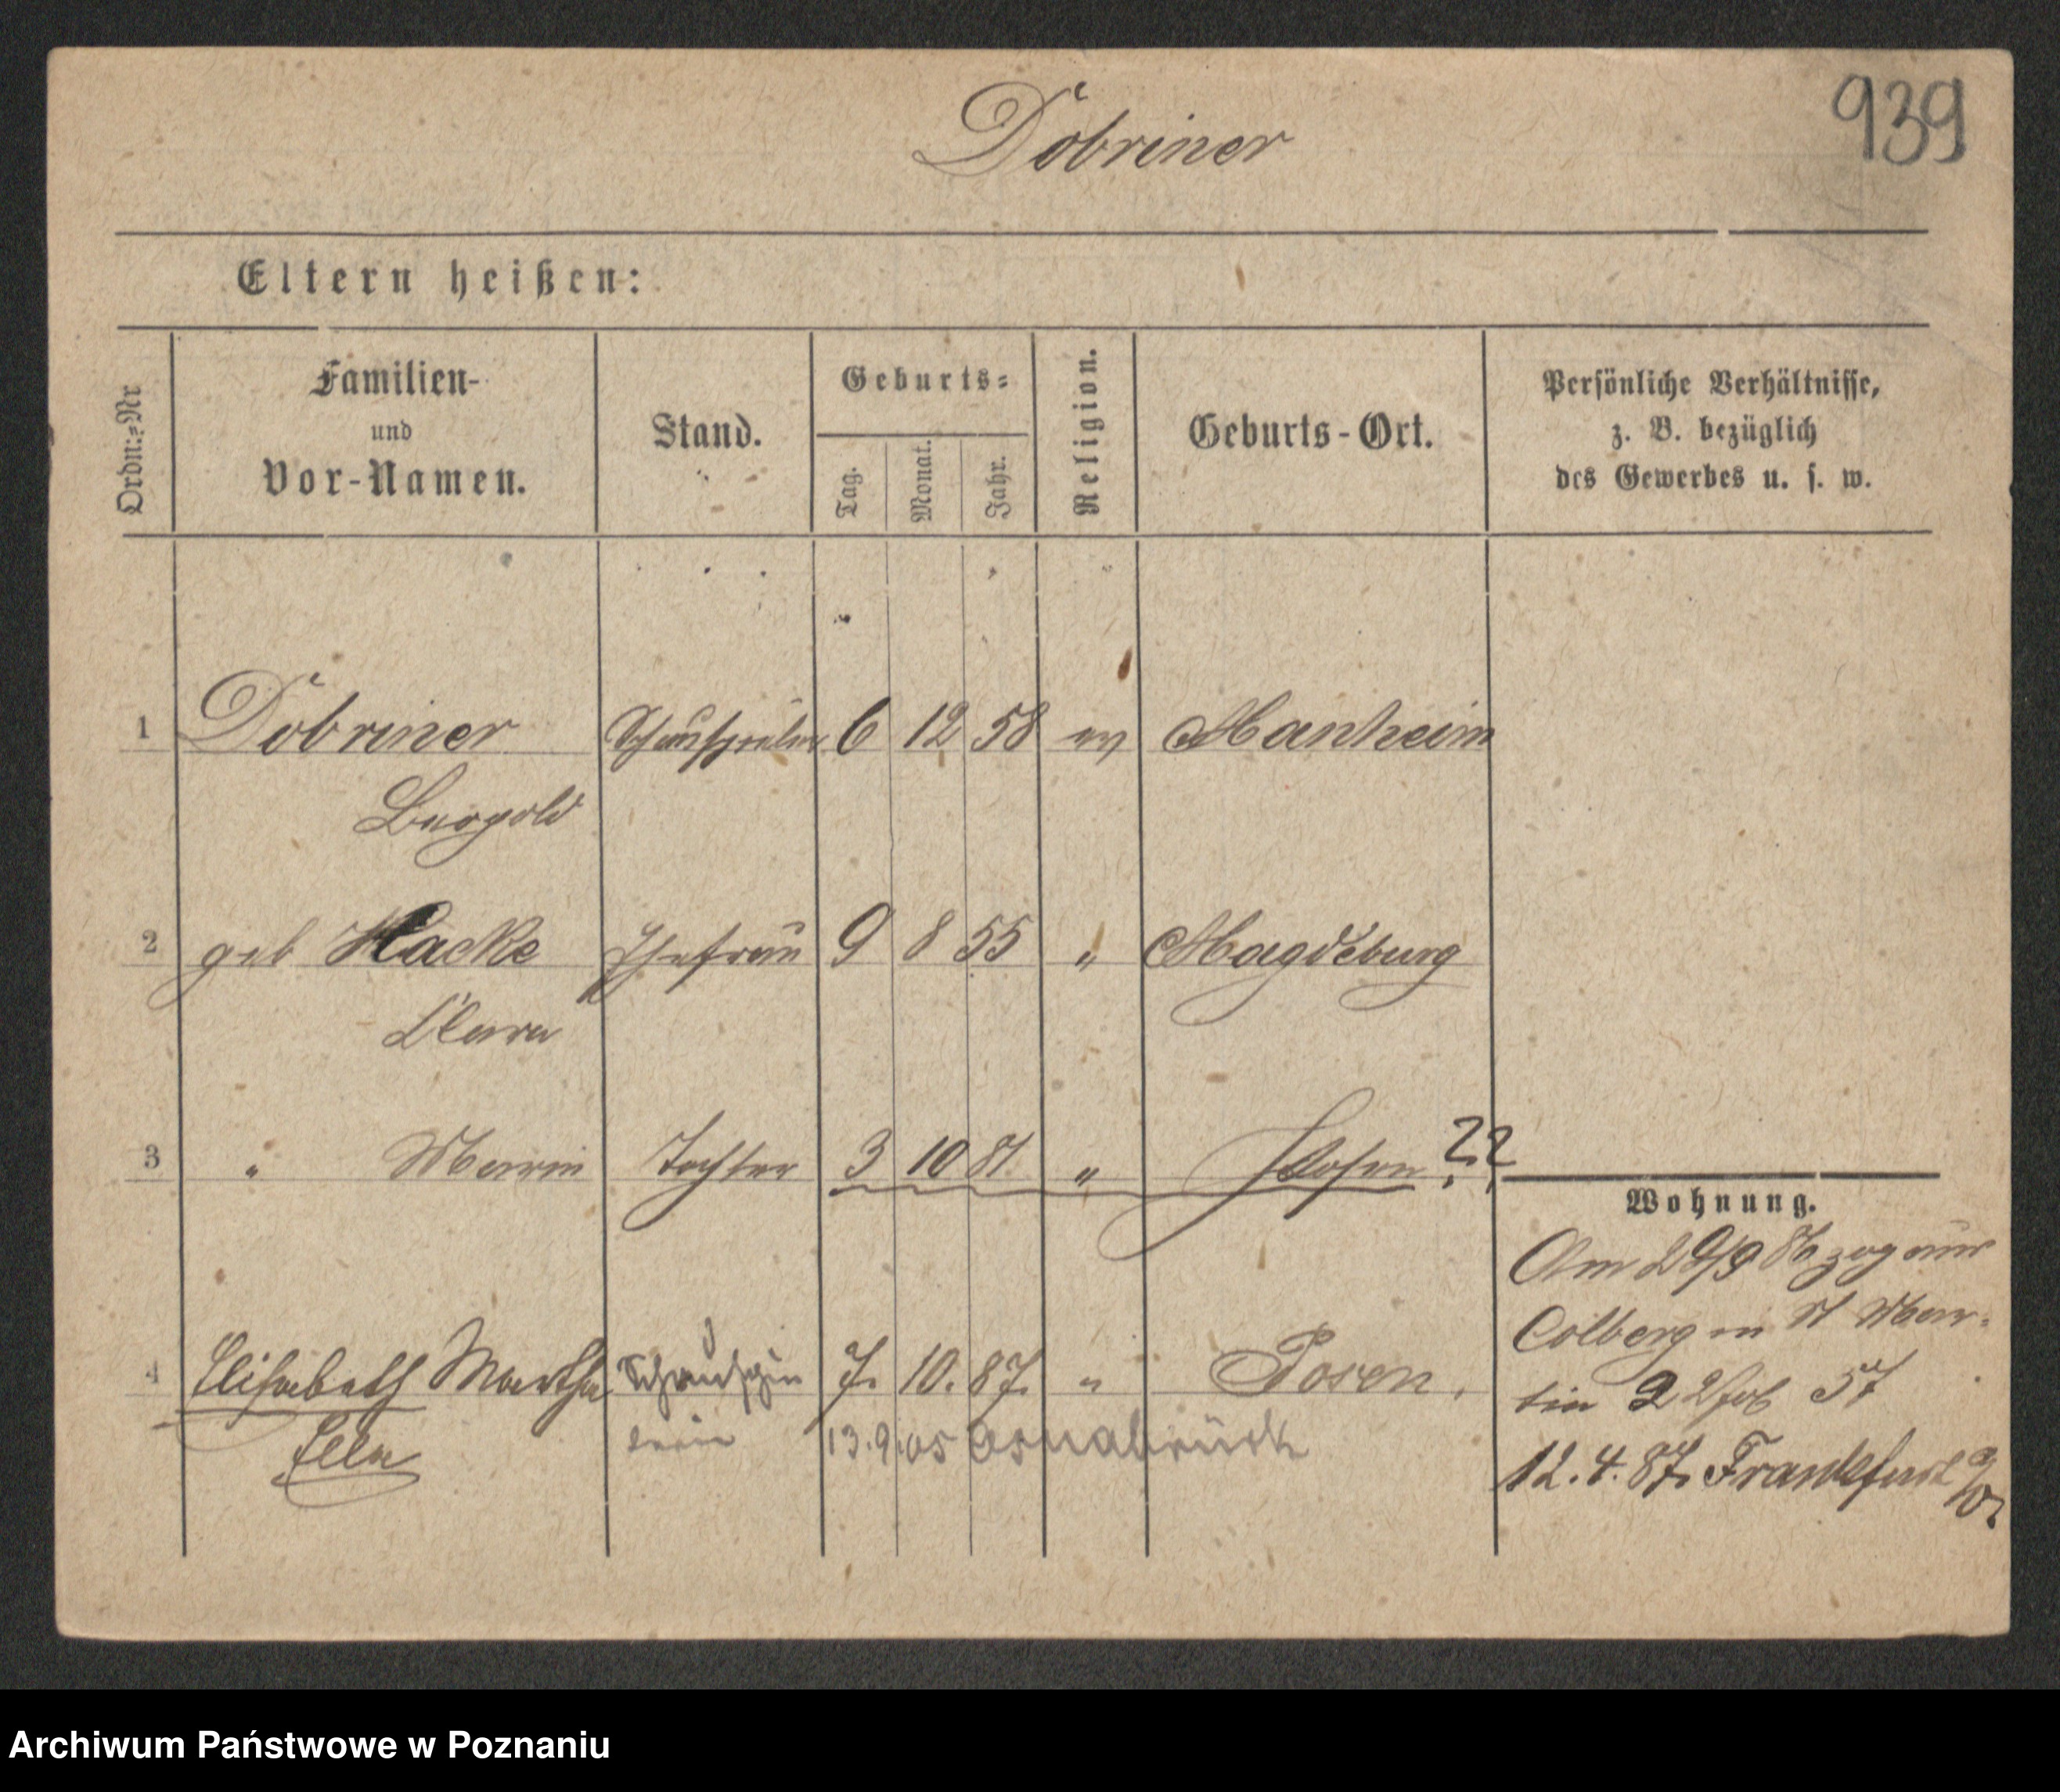 939
Dobriner
Eltern heißen:
Ordn.-Nr
Familien-
und
Vor-Namen.
Stand.
Geburts-
Tag.
Monat.
Jahr.
Religion.
Geburts-Ort.
Persönliche Verhältnisse,
z. B. bezüglich
des Gewerbes u. s. w.
1 Dobriner Schauspieler 6 12 58 ev Manheim
Leopold
2 geb Hacke Ehefrau 9 8 55 " Magdeburg
Clara
3 " Marie Tochter 3 10 81 " Posen ??
Wohnung.
Am 29/9 86 zog aus
Colberg n St Mar-
tin 2 57
4 Elisabeth Martha Schauspie 7. 10. 87. " Posen.
Ella lerin 13.9.05 Osnabrück
12.4.87. Frankfurt a/O.
Archiwum Państwowe w Poznaniu